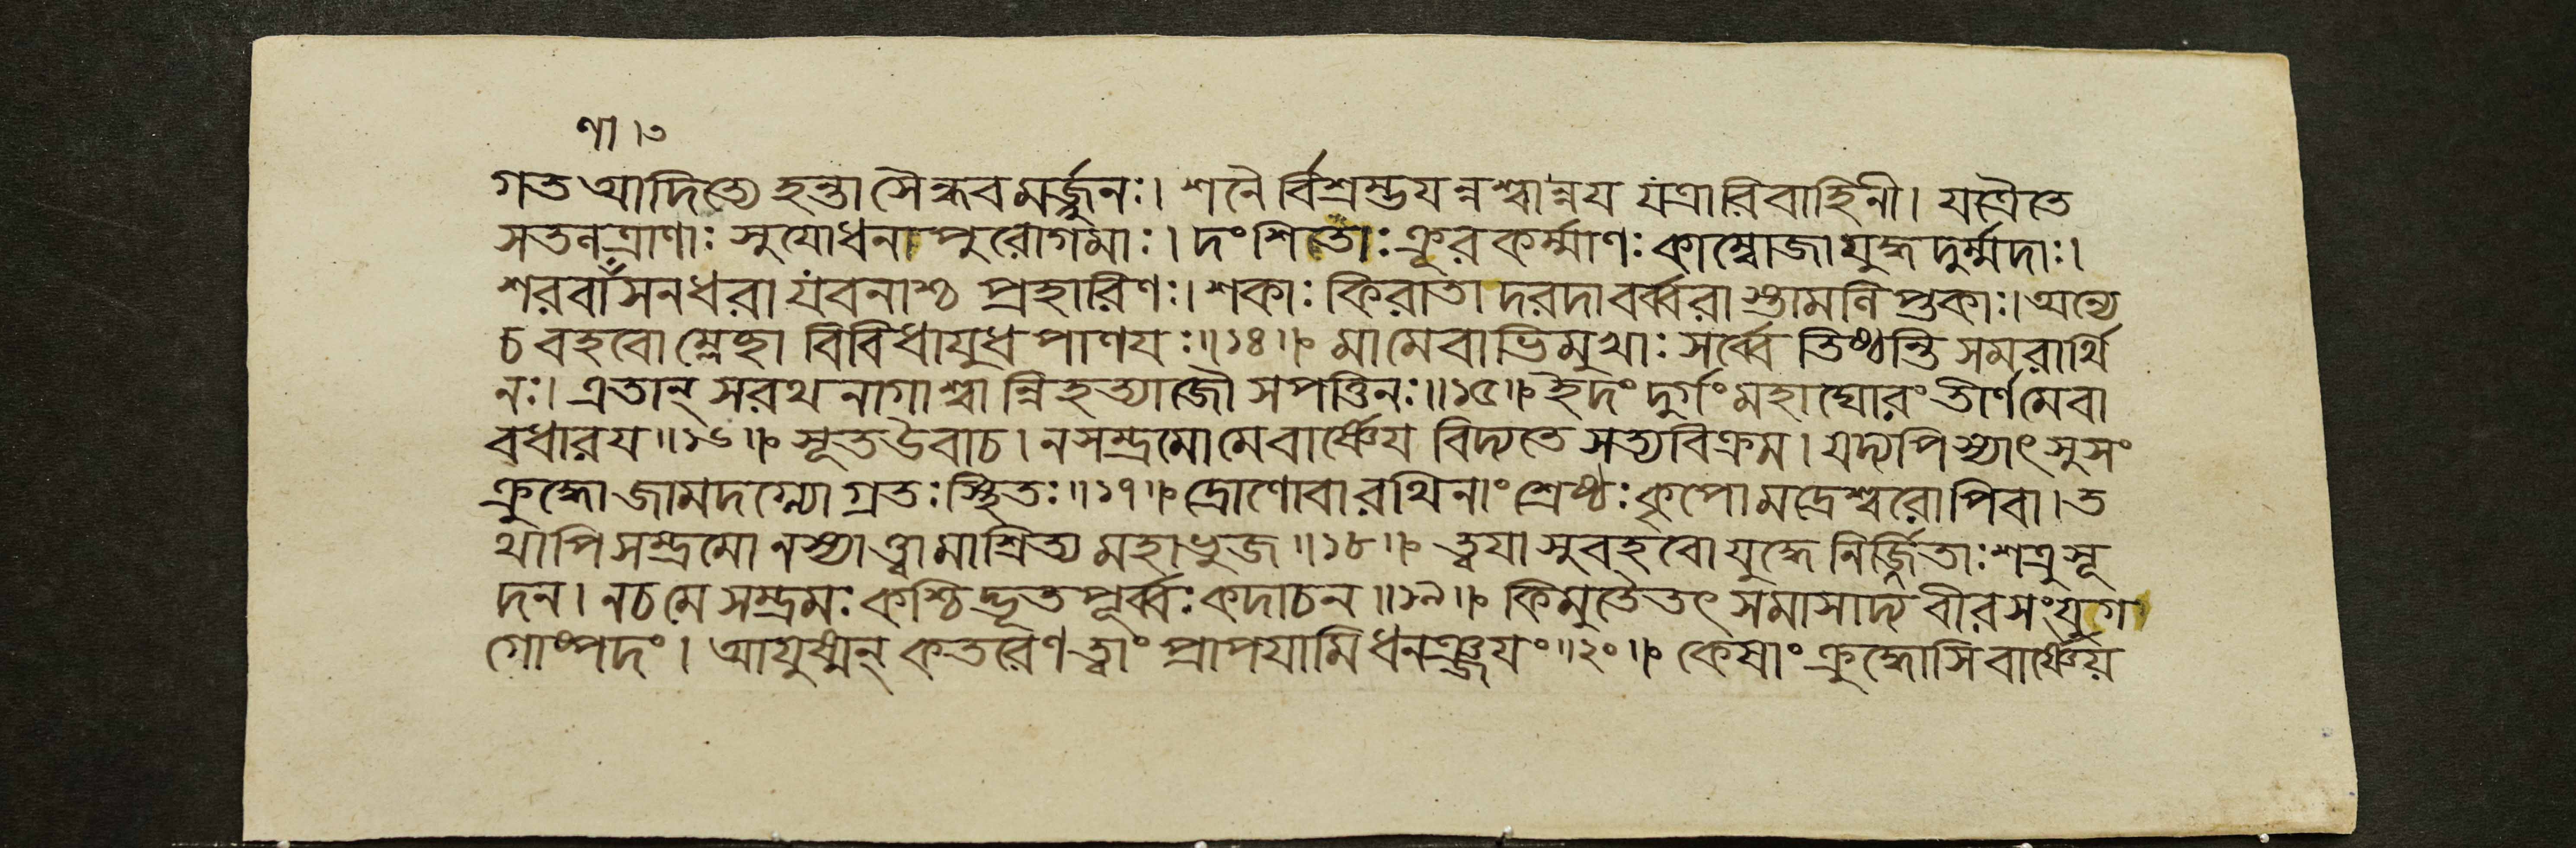 ণা।৩
গত আদিত্যে হন্তা সৈন্ধবমর্জ্জুনঃ। শনৈর্বিশ্রম্ভযন্নশ্বান্নয যত্রারিবাহিনী। যত্রৈতে
সতনত্রাণাঃ সুযোধনাপুরোগমাঃ। দংশিতাঃ ক্রূরকর্ম্মাণঃ কাম্বোজা যুদ্ধদুর্ম্মদাঃ।
শরবাঁসনধরা যবনাশ্চ প্রহারিণঃ। শকাঃ কিরাতা দরদা বর্ব্বরাস্তামণিপ্তকাঃ। অন্যে
চ বহবো ম্লেচ্ছা বিবিধাযুধপাণযঃ॥১৪॥ মামেবাভিমুখাঃ সর্ব্বে তিষ্ঠন্তি সমরার্থি
নঃ। এতান্ সরথনাগাশ্বান্নিহত্যাজৌ সপত্তিনঃ॥১৫॥ ইদং দুর্গং মহাঘোরং তীর্ণমেবা
বধারয॥১৬॥ সূত উবাচ। ন সম্ভ্রমো মে বার্ষ্ণেয বিদ্যতে সত্যবিক্রম। যদ্যপি স্যাৎ সুসং
ক্রুদ্ধো জামদগ্ন্যোগ্রতঃ স্থিতঃ॥১৭॥ দ্রোণো বা রথিনাং শ্রেষ্ঠঃ কৃপো মদ্রেশ্বরোপি বা। ত
থাপি সম্ভ্রমো ন স্যাত্ত্বামাশ্রিত্য মহাভুজ॥১৮॥ ত্বযা সুবহবো যুদ্ধে নির্জ্জিতাঃ শত্রুসূ
দন। ন চ মে সম্ভ্রমঃ কশ্চিদ্ভূতপূর্ব্বঃ কদাচন॥১৯॥ কিমুতৈতৎ সমাসাদ্য বীরসংযুগ
গোষ্পদং। আযুষ্মন্ কতরেণ ত্বাং প্রাপযামি ধনঞ্জযং॥২০॥ কেষাং ক্রুদ্ধোসি বার্ষ্ণেয়